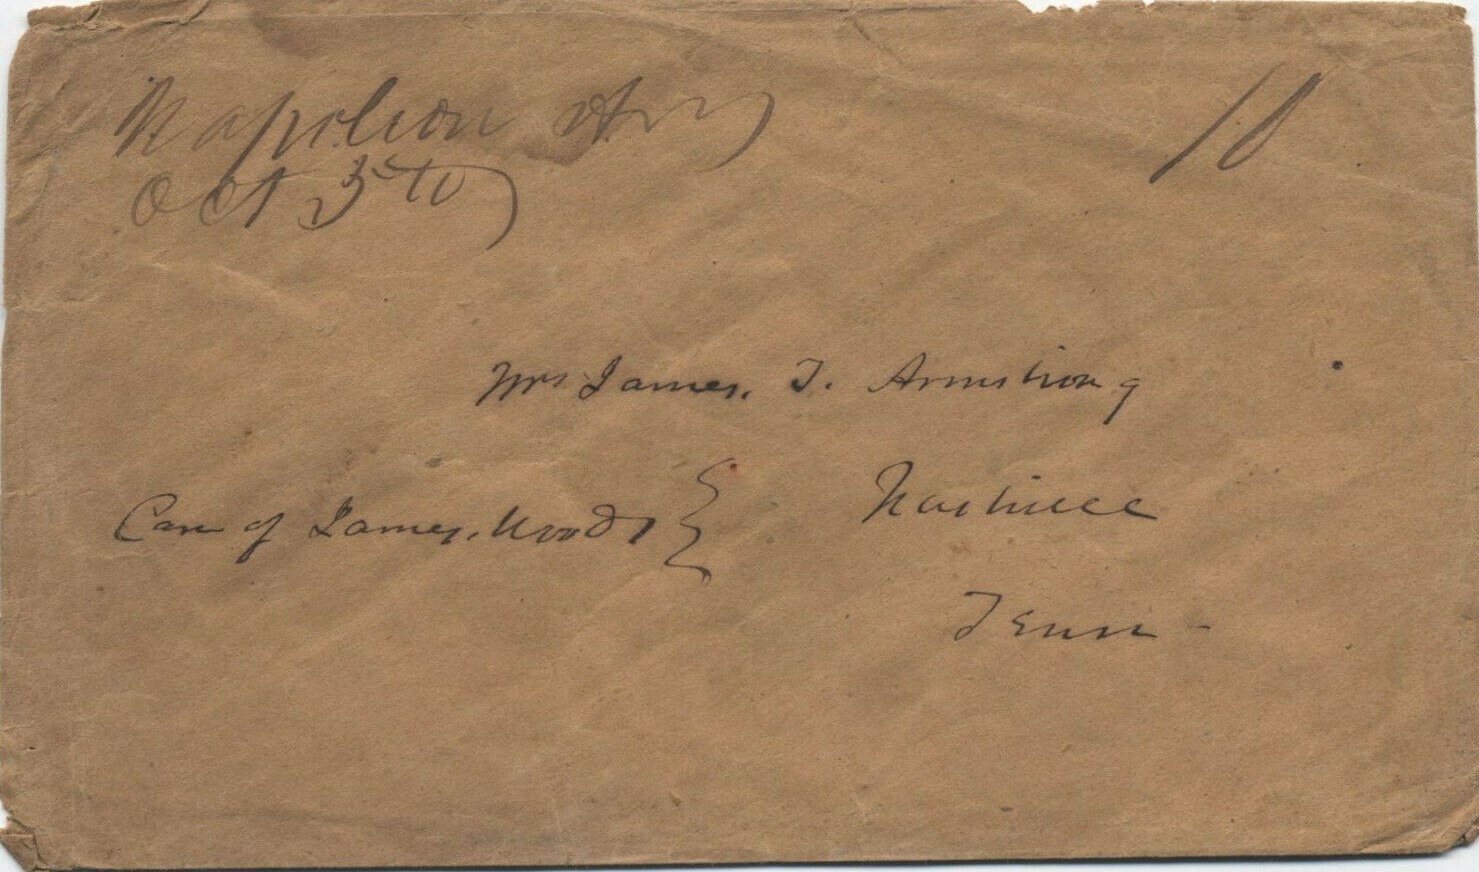 Napoleon Ark
Oct 5th
10
Mrs James. T. Armstrong
Care of James. Woods
Nashville
Tenn -